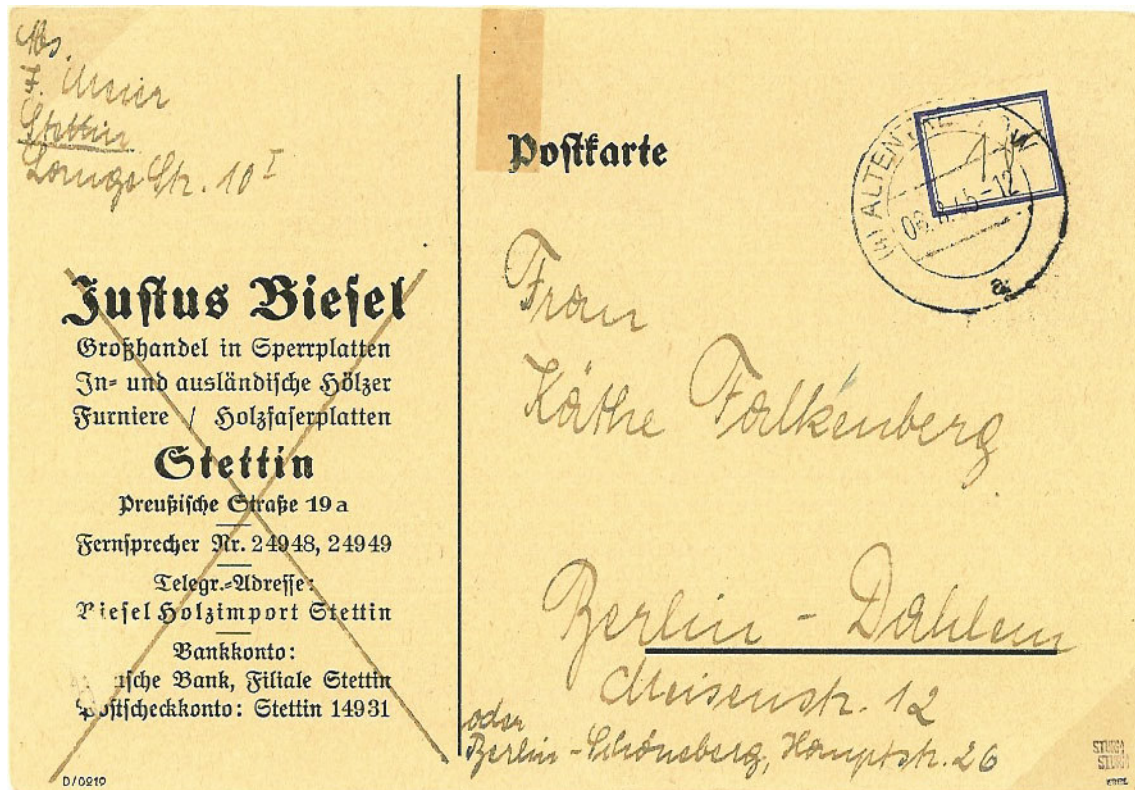 Abs.
F. Meier
Stettin
Lange Str. 10 I
Justus Biesel
Großhandel in Sperrplatten
In- und ausländische Hölzer
Furniere / Holzfaserplatten
Stettin
Preußische Straße 19a
Fernsprecher Nr. 24948, 24949
Telegr.-Adresse:
Biesel Holzimport Stettin
Bankkonto:
Bank, Filiale Stettin
Postscheckkonto: Stettin 14931
D/0219
Postkarte
(4) ALTENTRE
-12
a
Frau
Käthe Falkenberg
Berlin - Dahlem
Meisenstr. 12
oder
Berlin - Schöneberg, Hauptstr. 26
STURM
STURM